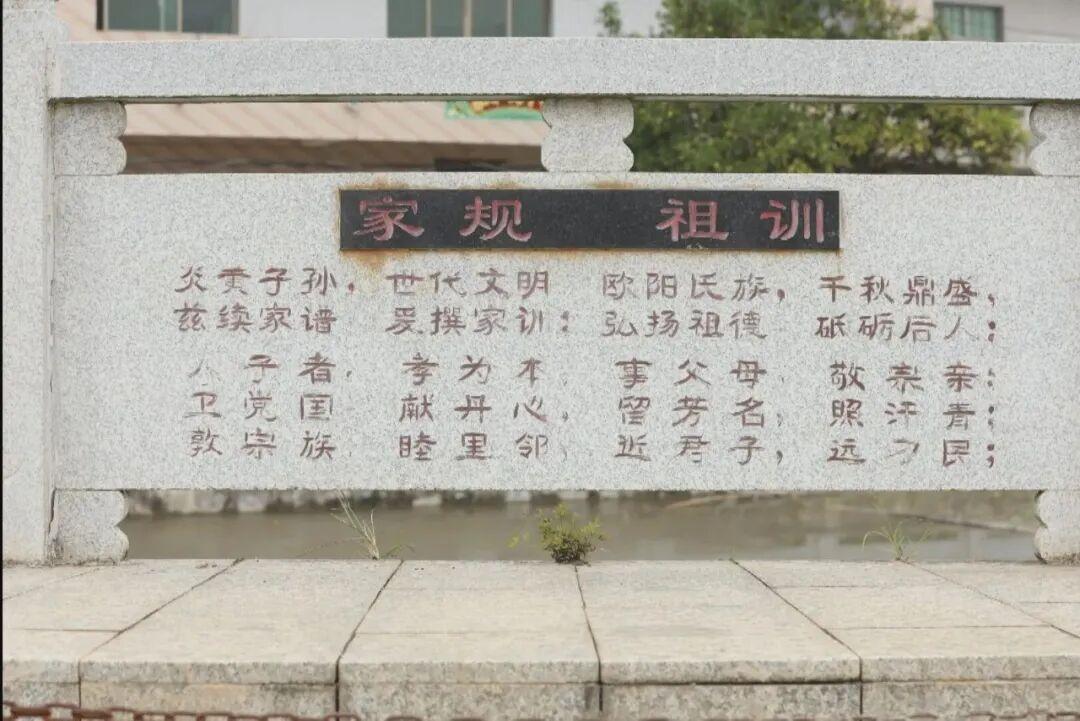 家规 祖训
炎黄子孙，世代文明 欧阳氏族，千秋鼎盛，
兹续家谱 爰撰家训：弘扬祖德 砥砺后人；
人子者，孝为本，事父母，敬亲：
卫党国 献丹心，留芳名，照汗青；
敦宗族 睦里邻，近君子，远刁民；